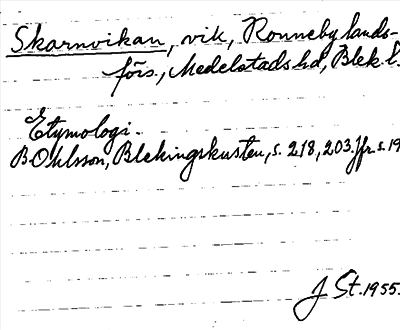 Skarnvikan, vik, Ronneby lands-
förs., Medelstads hd, Blek. l.
Etymologi.
B Ohlsson, Blekingskusten, s. 218, 203. Jfr s. 19
J St. 1955.